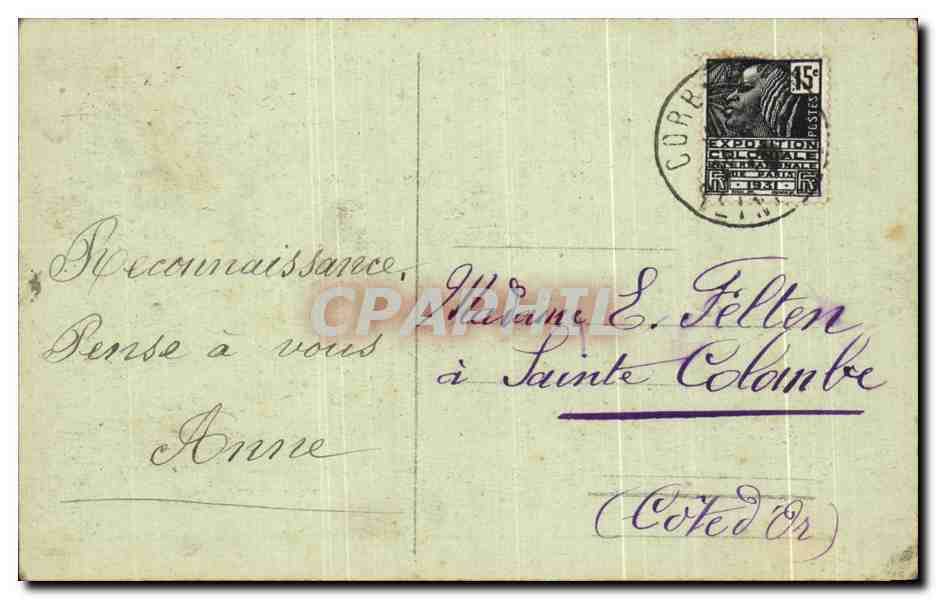 Reconnaissance.
Pense à vous
Anne
15c
POSTES
EXPOSITION
COLONIALE
INTERNATIONALE
DE PARIS
1931
Madame E. Felten
à Sainte Colombe
(Côte d'Or)
CPAPHIL